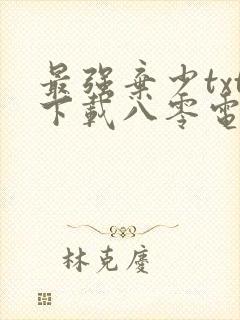 最强弃少txt
下载八零电
林克庆